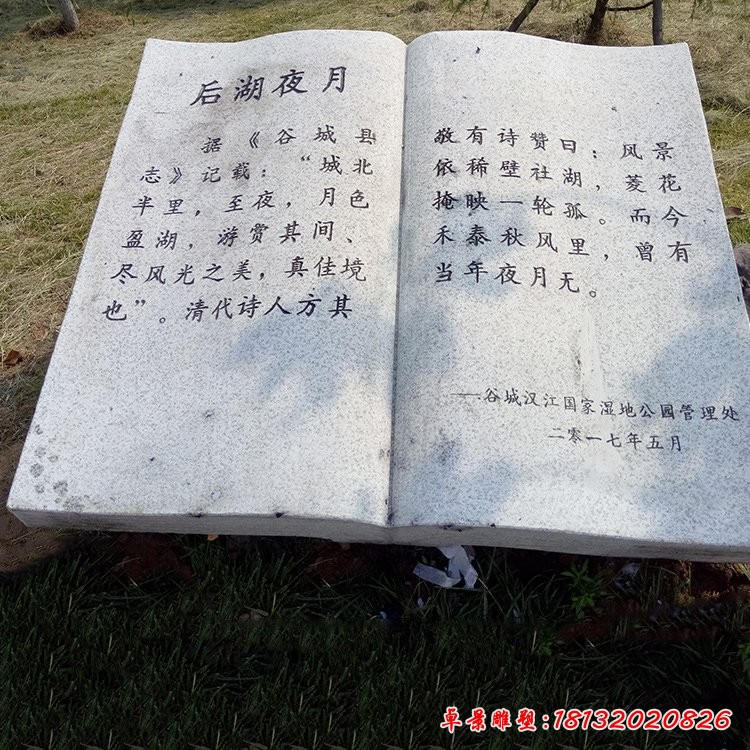 后湖夜月
据《谷城县
志》记载：“城北
半里，至夜，月色
盈湖，游赏其间、
尽风光之美，真佳境
也”。清代诗人方其
敬有诗赞曰：风景
依稀壁社湖，菱花
掩映一轮孤。而今
禾泰秋风里，曾有
当年夜月无。
——谷城汉江国家湿地公园管理处
二零一七年五月
卓景雕塑:18132020826